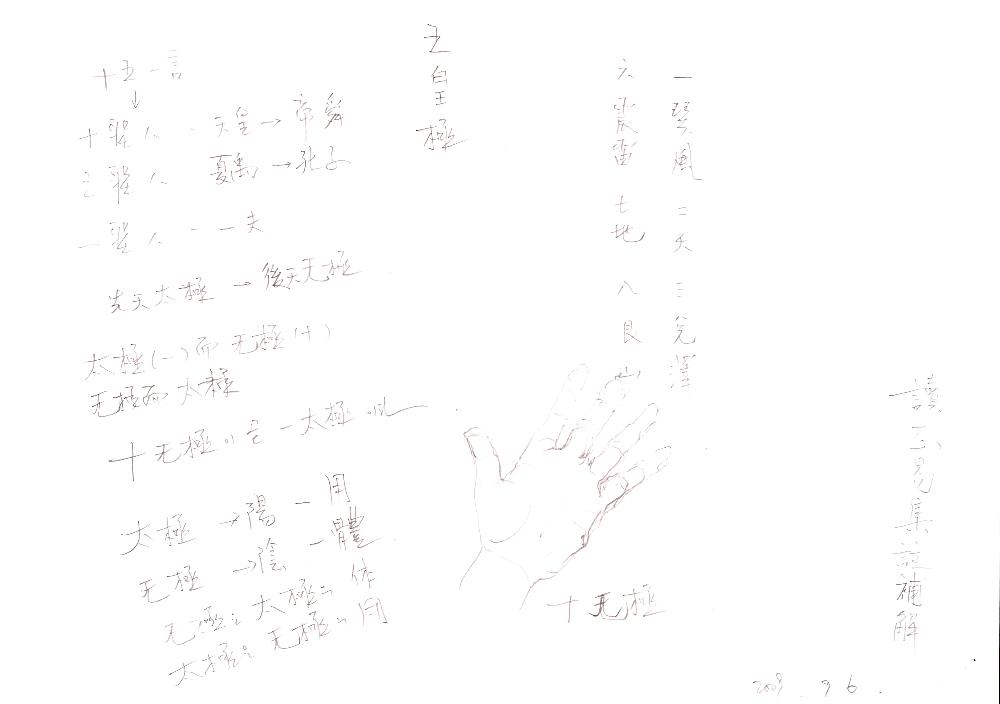 讀正易集註補解
一 巽風 二天 三兌澤
六震雷 七地 八艮山
五皇極
十五一言
↓
十聖人 - 天皇→帝舜
五聖人 夏禹→孔子
一聖人 - 一夫
先天太極→後天无極
太極(一)而 无極(十)
无極而太極
十无極이 곧 一太極
太極→陽 - 用
无極→陰 - 體
无極은 太極의 体
太極은 无極의 用
十无極
2009. 9 6.